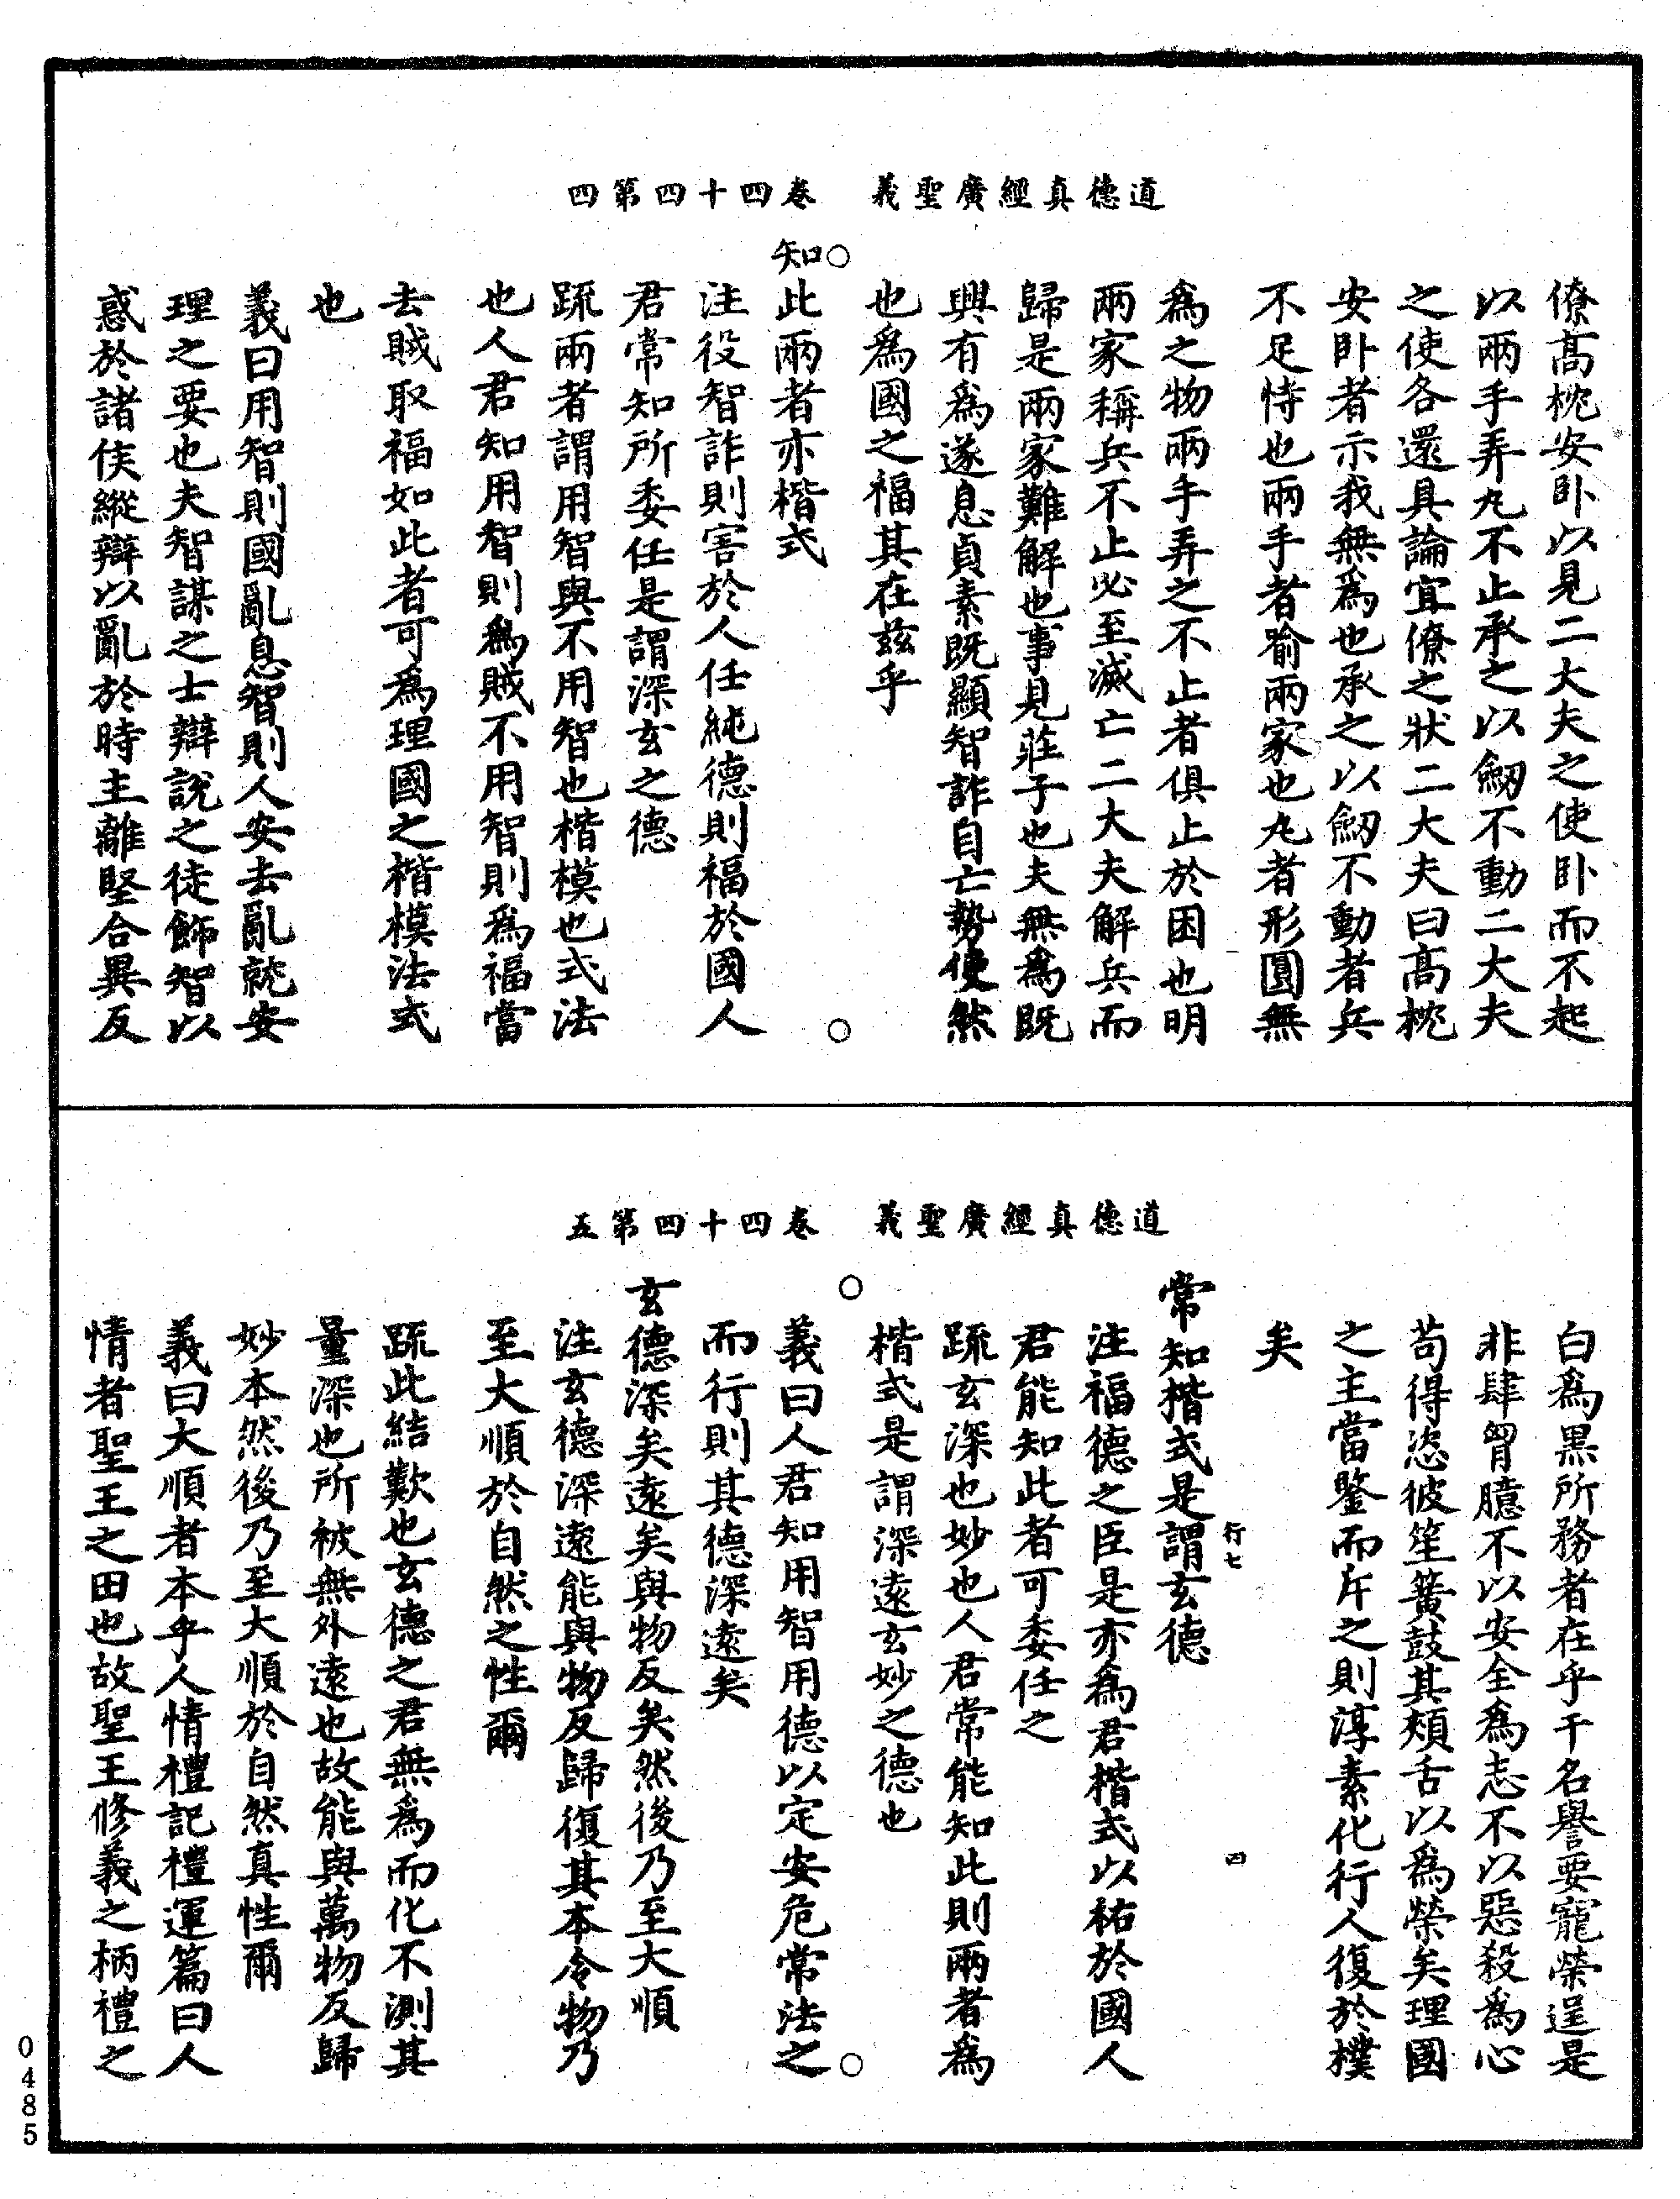 道德真經廣聖義　卷四十四第四
僚高枕安卧以見二大夫之使卧而不起
以兩手弄丸不止承之以劒不動二大夫
之使各還具論宜僚之狀二大夫曰高枕
安卧者示我無為也承之以劒不動者兵
不足恃也兩手者喻兩家也丸者形圓無
為之物兩手弄之不止者俱止於困也明
兩家稱兵不止必至滅亡二大夫解兵而
歸是兩家難解也事見莊子也夫無為既
興有為遂息貞素既顯智詐自亡勢使然
也為國之福其在兹乎
知此兩者亦楷式
注役智詐則害於人任純德則福於國人
君常知所委任是謂深玄之德
䟽兩者謂用智與不用智也楷模也式法
也人君知用智則為賊不用智則為福當
去賊取福如此者可為理國之楷模法式
也
義曰用智則國亂息智則人安去亂就安
理之要也夫智謀之士辯說之徒飾智以
惑於諸侯縱辯以亂於時主離堅合異反
道德真經廣聖義　卷四十四第五
白為黑所務者在乎干名譽要寵榮逞是
非肆胷臆不以安全為志不以惡殺為心
苟得恣彼笙簧鼓其頰舌以為榮矣理國
之主當鑒而斥之則淳素化行人復於樸
矣
行七　四
常知楷式是謂玄德
注福德之臣是亦為君楷式以祐於國人
君能知此者可委任之
䟽玄深也妙也人君常能知此則兩者為
楷式是謂深遠玄妙之德也
義曰人君知用智用德以定安危常法之
而行則其德深遠矣
玄德深矣遠矣與物反矣然後乃至大順
注玄德深遠能與物反歸復其本令物乃
至大順於自然之性爾
䟽此結歎也玄德之君無為而化不測其
量深也所被無外遠也故能與萬物反歸
妙本然後乃至大順於自然真性爾
義曰大順者本乎人情禮記禮運篇曰人
情者聖王之田也故聖王修義之柄禮之
0485